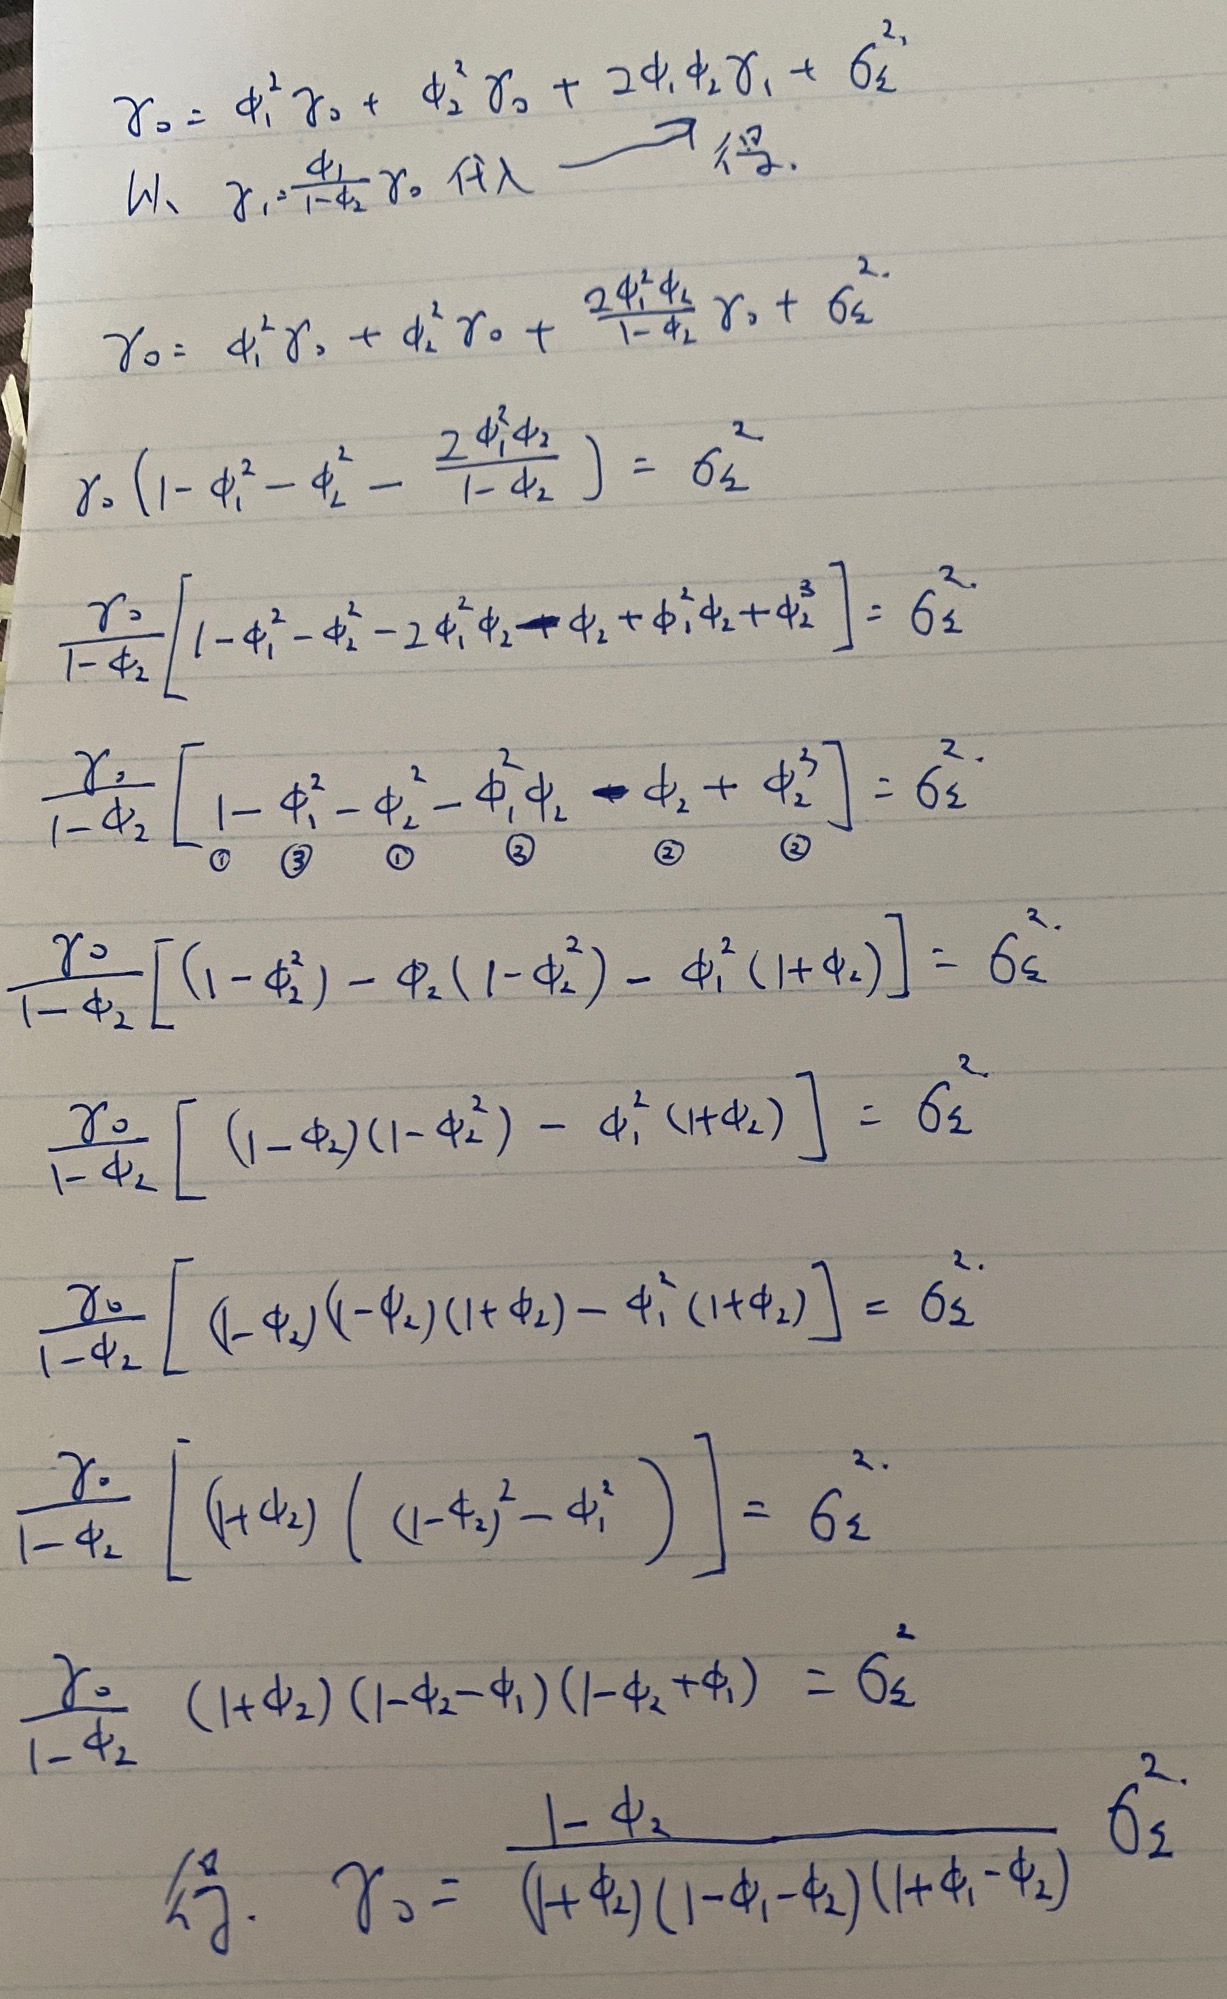 γ₀ = ϕ₁²γ₀ + ϕ₂²γ₀ + 2ϕ₁ϕ₂γ₁ + σ_ε²
以 γ₁ = ϕ₁/(1-ϕ₂) γ₀ 代入 → 得.
γ₀ = ϕ₁²γ₀ + ϕ₂²γ₀ + 2ϕ₁²ϕ₂/(1-ϕ₂) γ₀ + σ_ε²
γ₀(1 - ϕ₁² - ϕ₂² - 2ϕ₁²ϕ₂/(1-ϕ₂)) = σ_ε²
γ₀/(1-ϕ₂) [1 - ϕ₁² - ϕ₂² - 2ϕ₁²ϕ₂ - ϕ₂ + ϕ₁²ϕ₂ + ϕ₂³] = σ_ε²
γ₀/(1-ϕ₂) [1 - ϕ₁² - ϕ₂² - ϕ₁²ϕ₂ - ϕ₂ + ϕ₂³] = σ_ε²
① ③ ① ③ ② ②
γ₀/(1-ϕ₂) [(1-ϕ₂²) - ϕ₂(1-ϕ₂²) - ϕ₁²(1+ϕ₂)] = σ_ε²
γ₀/(1-ϕ₂) [(1-ϕ₂)(1-ϕ₂²) - ϕ₁²(1+ϕ₂)] = σ_ε²
γ₀/(1-ϕ₂) [(1-ϕ₂)(1-ϕ₂)(1+ϕ₂) - ϕ₁²(1+ϕ₂)] = σ_ε²
γ₀/(1-ϕ₂) [(1+ϕ₂)((1-ϕ₂)² - ϕ₁²)] = σ_ε²
γ₀/(1-ϕ₂) (1+ϕ₂)(1-ϕ₂-ϕ₁)(1-ϕ₂+ϕ₁) = σ_ε²
得. γ₀ = (1-ϕ₂)/((1+ϕ₂)(1-ϕ₁-ϕ₂)(1+ϕ₁-ϕ₂)) σ_ε²